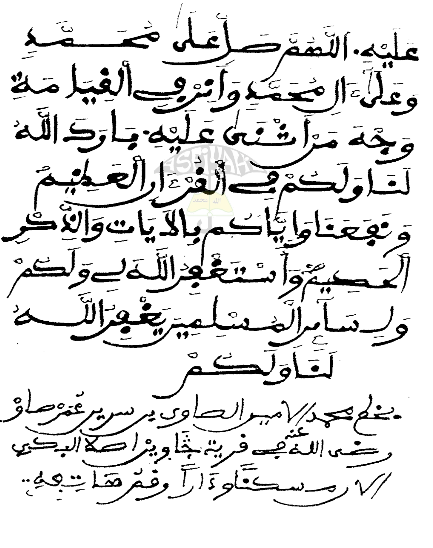 عليه. اللهم صل على محمد
وعلى ءال محمد وأنر في القيامة
وجه من أثنى عليه. بارك الله
لنا ولكم في القرءان العظيم
ونفعنا وإياكم بالآيات والذكر
الحكيم وأستغفر الله لي ولكم
ولسائر المسلمين يغفر الله
لنا ولكم
بخط محمد الأمين الصاوي بن سرين عمر صاو
رضي الله عنه في قرية أصلا البكي
الآن مسكنا ودارا وقبر